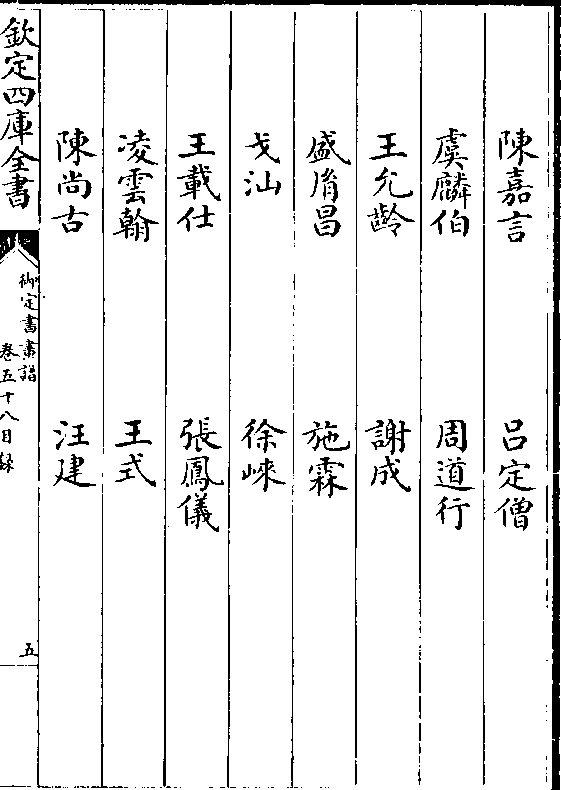 陳嘉言 呂定僧
虞麟伯 周道行
王允齡 謝成
盛胤昌 施霖
戈汕 徐崃
王載仕 張鳳儀
凌雲翰 王式
陳尚古 汪建
欽定四庫全書
御定書畫譜
卷五十八目録
五